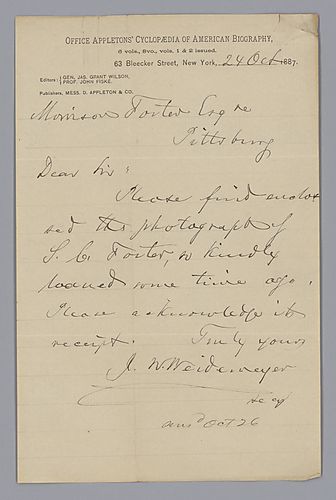 OFFICE APPLETONS' CYCLOPÆDIA OF AMERICAN BIOGRAPHY,
6 vols., 8vo., vols. 1 & 2 issued.
63 Bleecker Street, New York, 24 Oct. 1887.
Editors { GEN. JAS. GRANT WILSON,
PROF. JOHN FISKE.
Publishers, MESS. D. APPLETON & CO.
Morrison Foster Esq
Pittsburg
Dear Sir:
Please find enclo
sed the photograph of
S. C. Foster, so kindly
loaned some time ago.
Please acknowledge its
receipt. Truly yours
J. W. Weidemeyer
ansd Oct 26